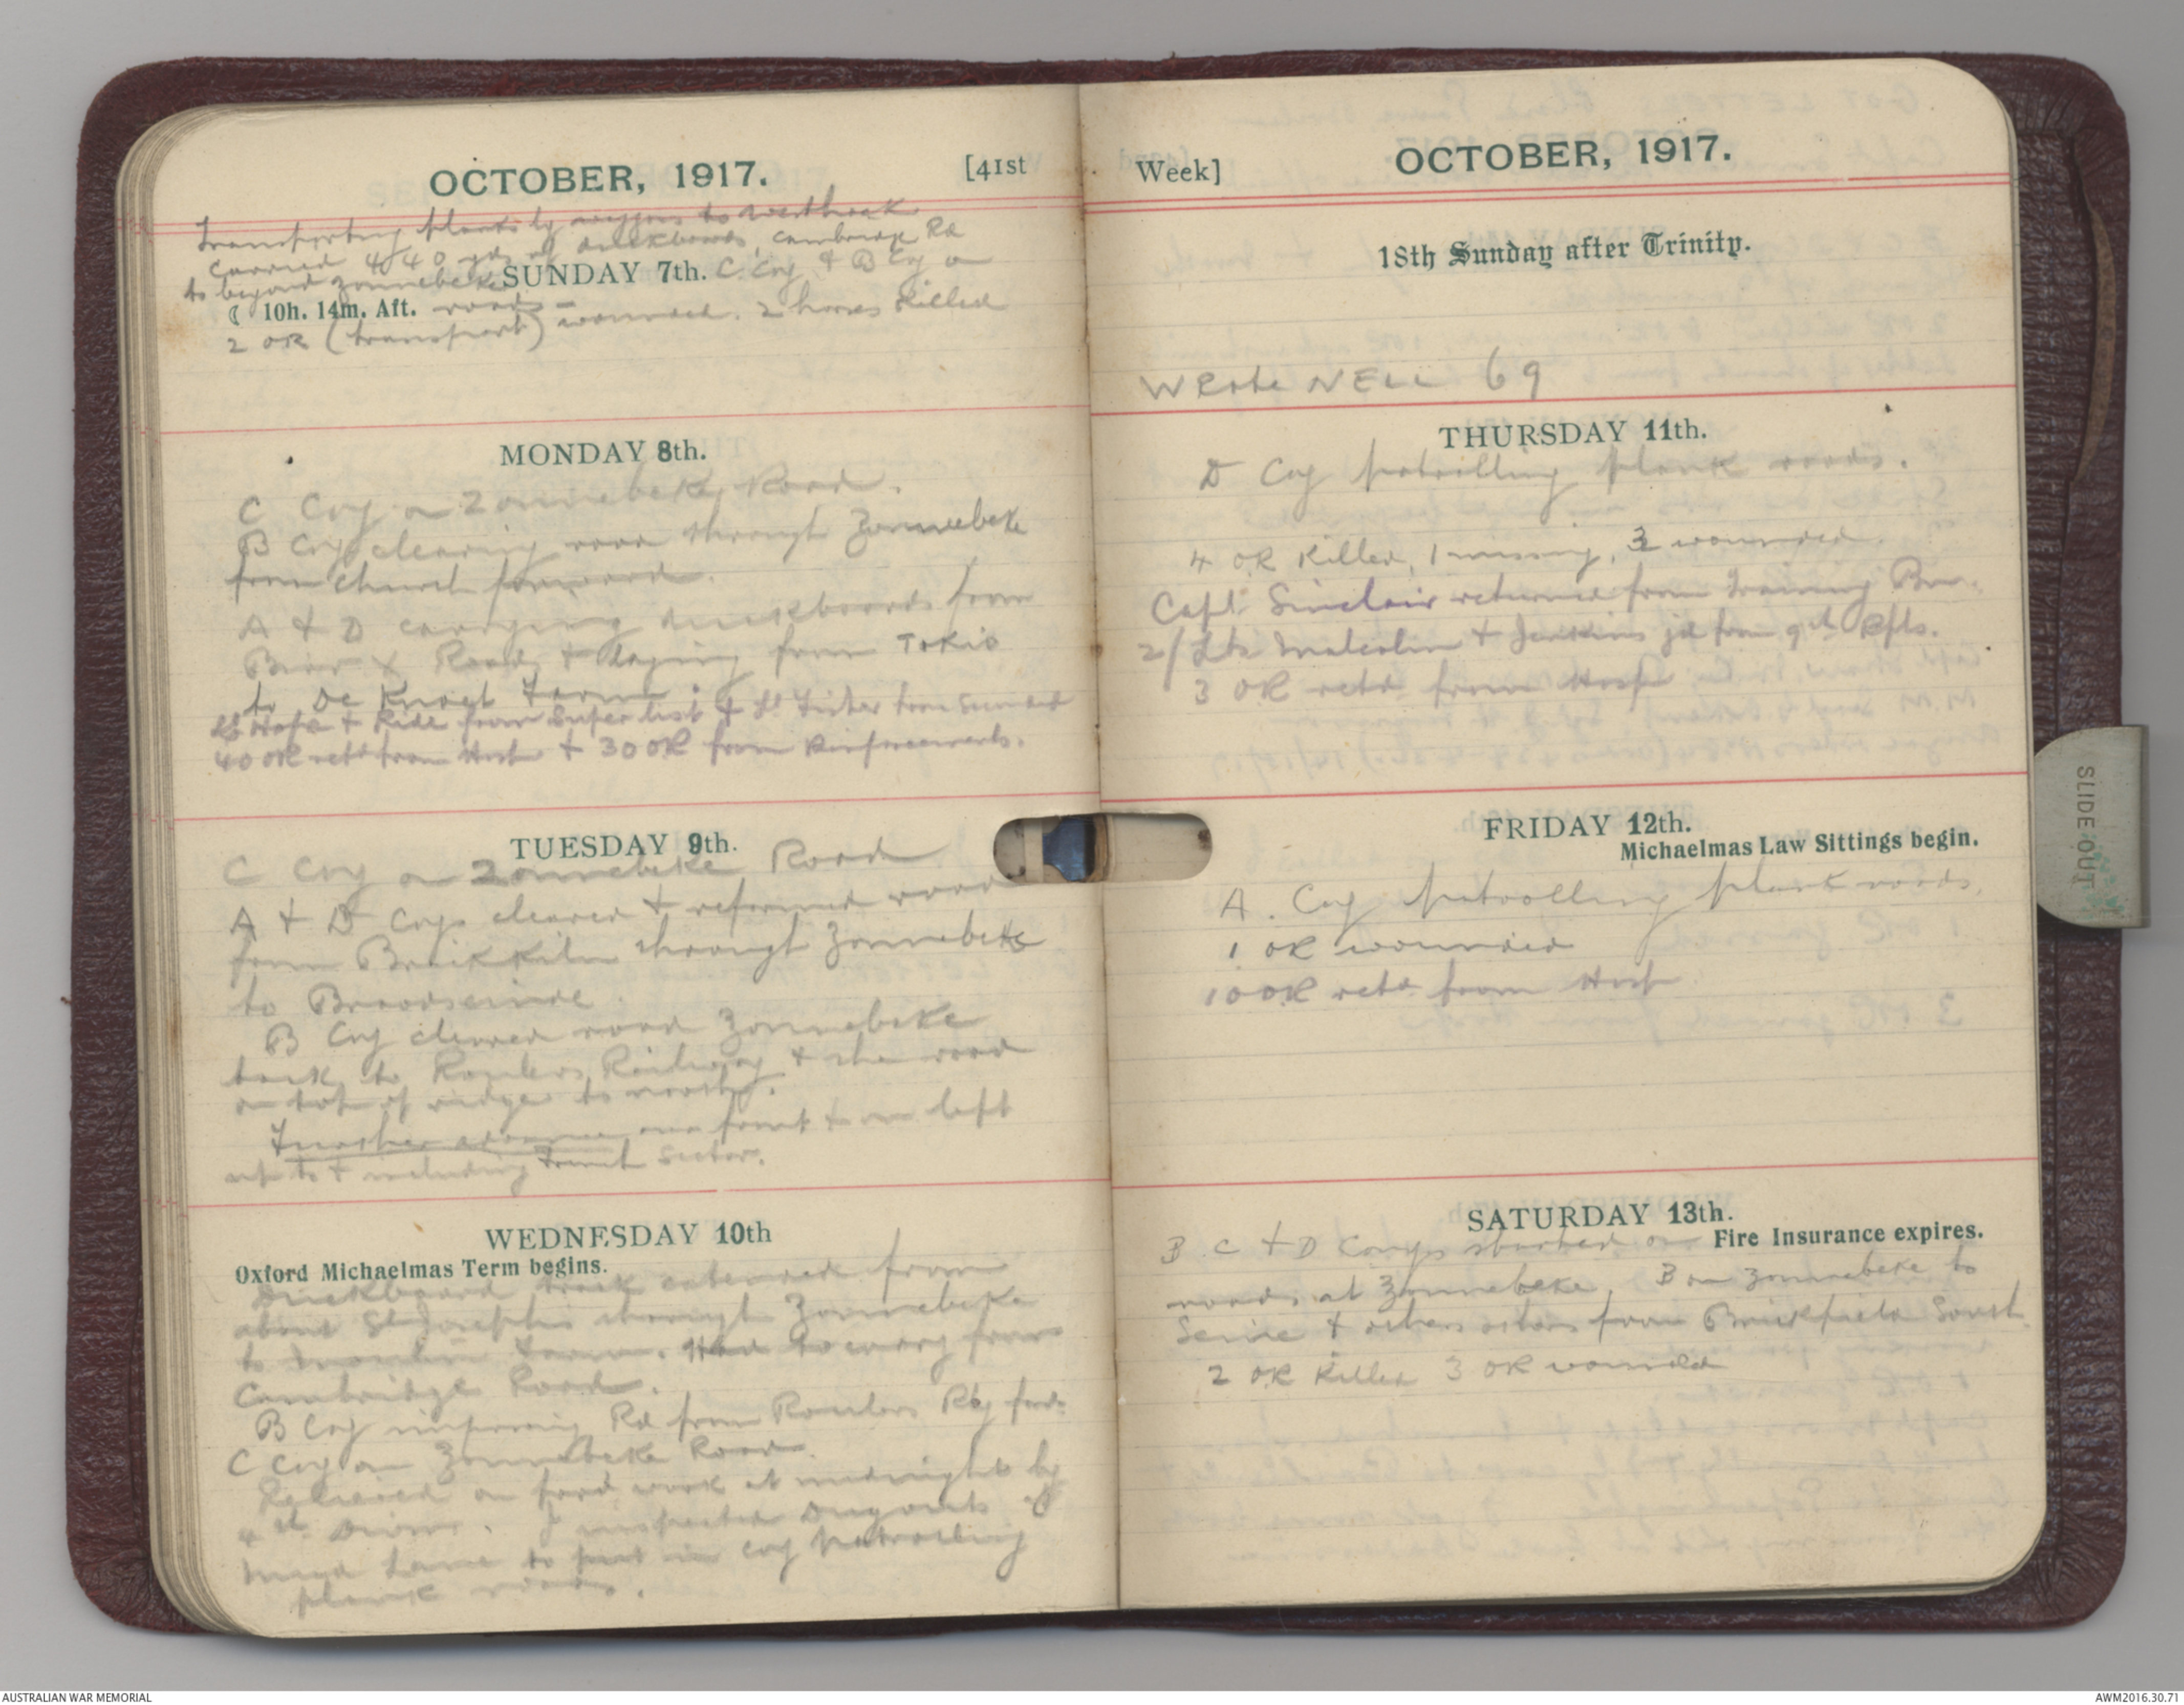 OCTOBER, 1917. [41st
Transporting planks by waggons to Westhoek
Carried 440 yds of duckboards, Cambridge Rd
to beyond Zonnebeke
SUNDAY 7th. C Coy & B Coy on
☾ 10h. 14m. Aft. roads –
2 OR (transport) wounded. 2 horses killed
MONDAY 8th.
C Coy on Zonnebeke Road.
B Coy clearing road through Zonnebeke
from church forward.
A & D carrying duckboards from
X Roads & laying from TOKIO
to De Knoet Farm.
Lts Hope & Ride from Super list & Lt Fisher from
40 OR retd from Hosp & 30 OR from Reinforcements.
TUESDAY 9th.
C Coy on Zonnebeke Road
A & D Coys cleared & reformed road
from Brick Kiln through Zonnebeke
to Broodseinde.
B Coy cleared road Zonnebeke
back to Roulers Railway & the road
on top of ridge to north.
Further advance our front & on left
up to & including French Sector.
WEDNESDAY 10th
Oxford Michaelmas Term begins.
Duckboard track extended from
about St Josephs through Zonnebeke
to Farm. Had to carry from
Cambridge Road.
B Coy improving Rd from Roulers Rly ford.
C Coy on Zonnebeke Road.
Relieved on ford work at midnight by
4th Divn. I inspected Dugouts of
Lane to put in coy patrolling
plank roads.
Week] OCTOBER, 1917.
18th Sunday after Trinity.
WRote NELL 69
THURSDAY 11th.
D Coy patrolling plank roads.
4 OR Killed, 1 missing, 3 wounded.
Capt. Sinclair returned from Training Bn.
2/Lts Malcolm & Jenkins jd from 9th Rfts.
3 OR retd from Hosp
FRIDAY 12th.
Michaelmas Law Sittings begin.
A. Coy patrolling plank roads.
1 OR wounded
10 OR retd from Hosp
SATURDAY 13th.
B C & D Coys started on Fire Insurance expires.
roads at Zonnebeke, B on Zonnebeke to
Seine & others from Brickfield South
2 OR Killed 3 OR wounded
SLIDE OUT
AUSTRALIAN WAR MEMORIAL
AWM2016.30.71